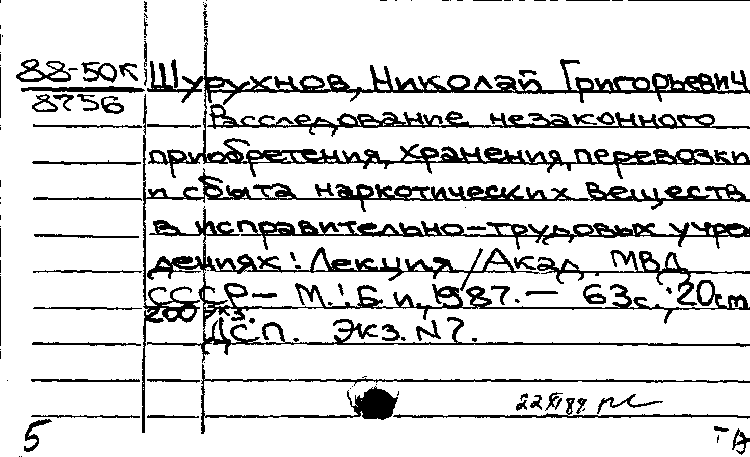 88-50к Шурухнов, Николай Григорьевич
8756
Расследование незаконного
приобретения, хранения, перевозки
и сбыта наркотических веществ
в исправительно-трудовых учреж
дениях: Лекция / Акад. МВД
СССР - М.: Б.и., 1987. - 63с.; 20см
200 экз.
ДСП. Экз. N7.
5